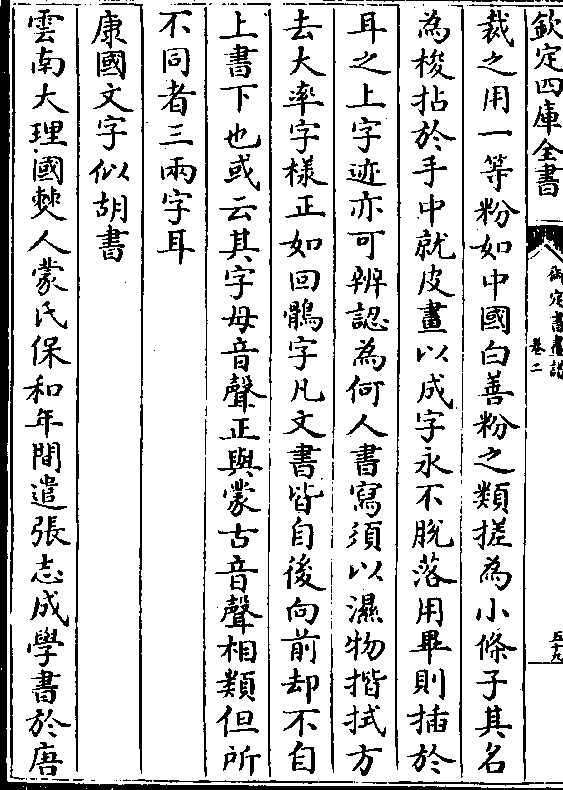 欽定四庫全書
御定書畫譜
卷二
五十九
裁之用一等粉如中國白善粉之類搓為小條子其名
為梭拈於手中就皮畫以成字永不脫落用畢則插於
耳之上字迹亦可辨認為何人書寫須以濕物揩拭方
去大率字様正如回鶻字凡文書皆自後向前却不自
上書下也或云其字母音聲正與蒙古音聲相類但所
不同者三兩字耳
康國文字似胡書
雲南大理國僰人蒙氏保和年間遣張志成學書於唐